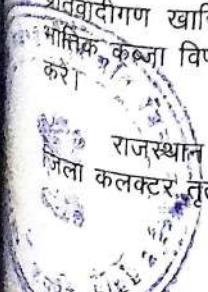 प्रतिवादीगण खारि
भौतिक कब्जा विप
करे।
राजस्थान
जिला कलक्टर, तृ